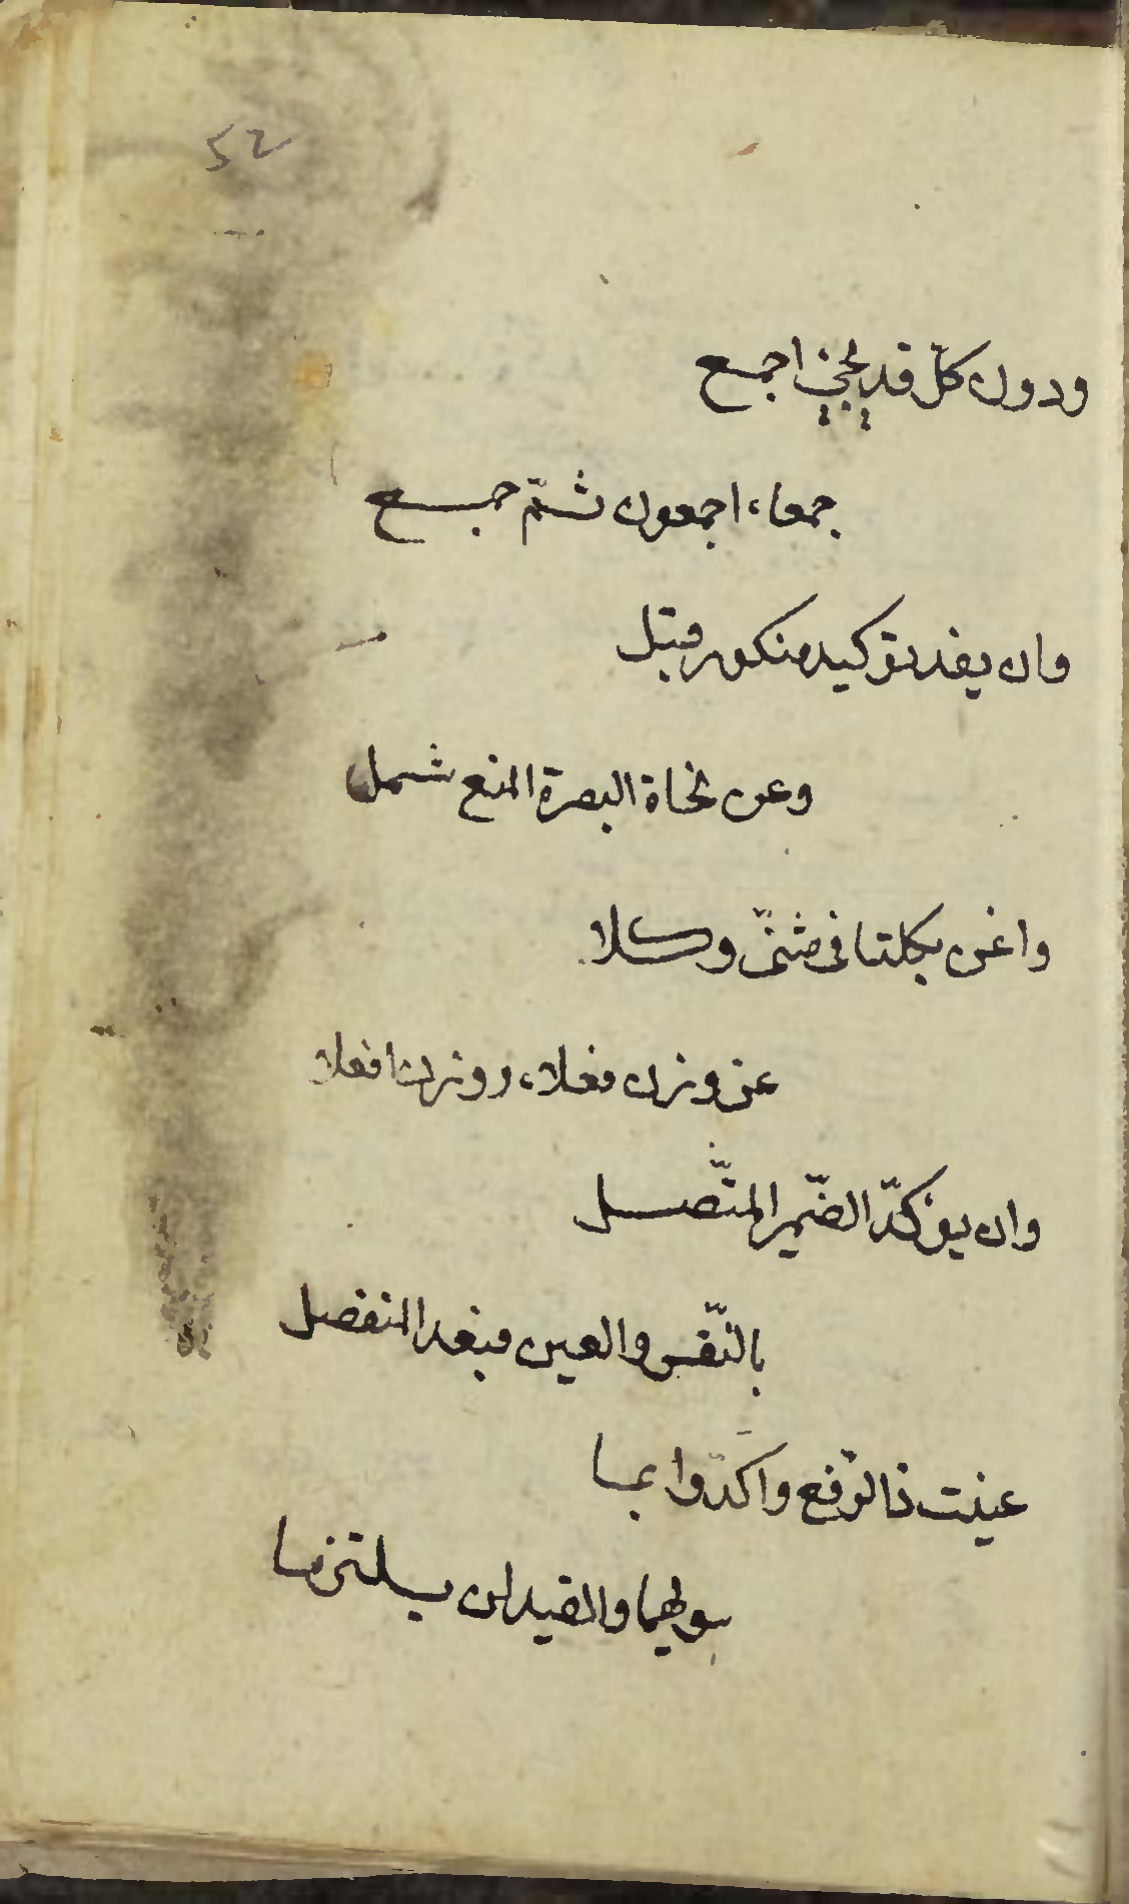 52
ودون كلّ قد يجئ اجمع
جمعاء اجمعون ثمّ جمع
وان يفد توكيد منكور قبل
وعن نحاة البصرة المنع شمل
واغن بكلتا فى مثنّى وكلا
عن وزن فعلاء ووزن افعلا
وان يؤكدّ الضّمير المتّصل
بالنّفس والعين فبعد المنفصل
عنيت ذا الرّفع واكدّوا بما
سواهما والقيد لن يلتزما